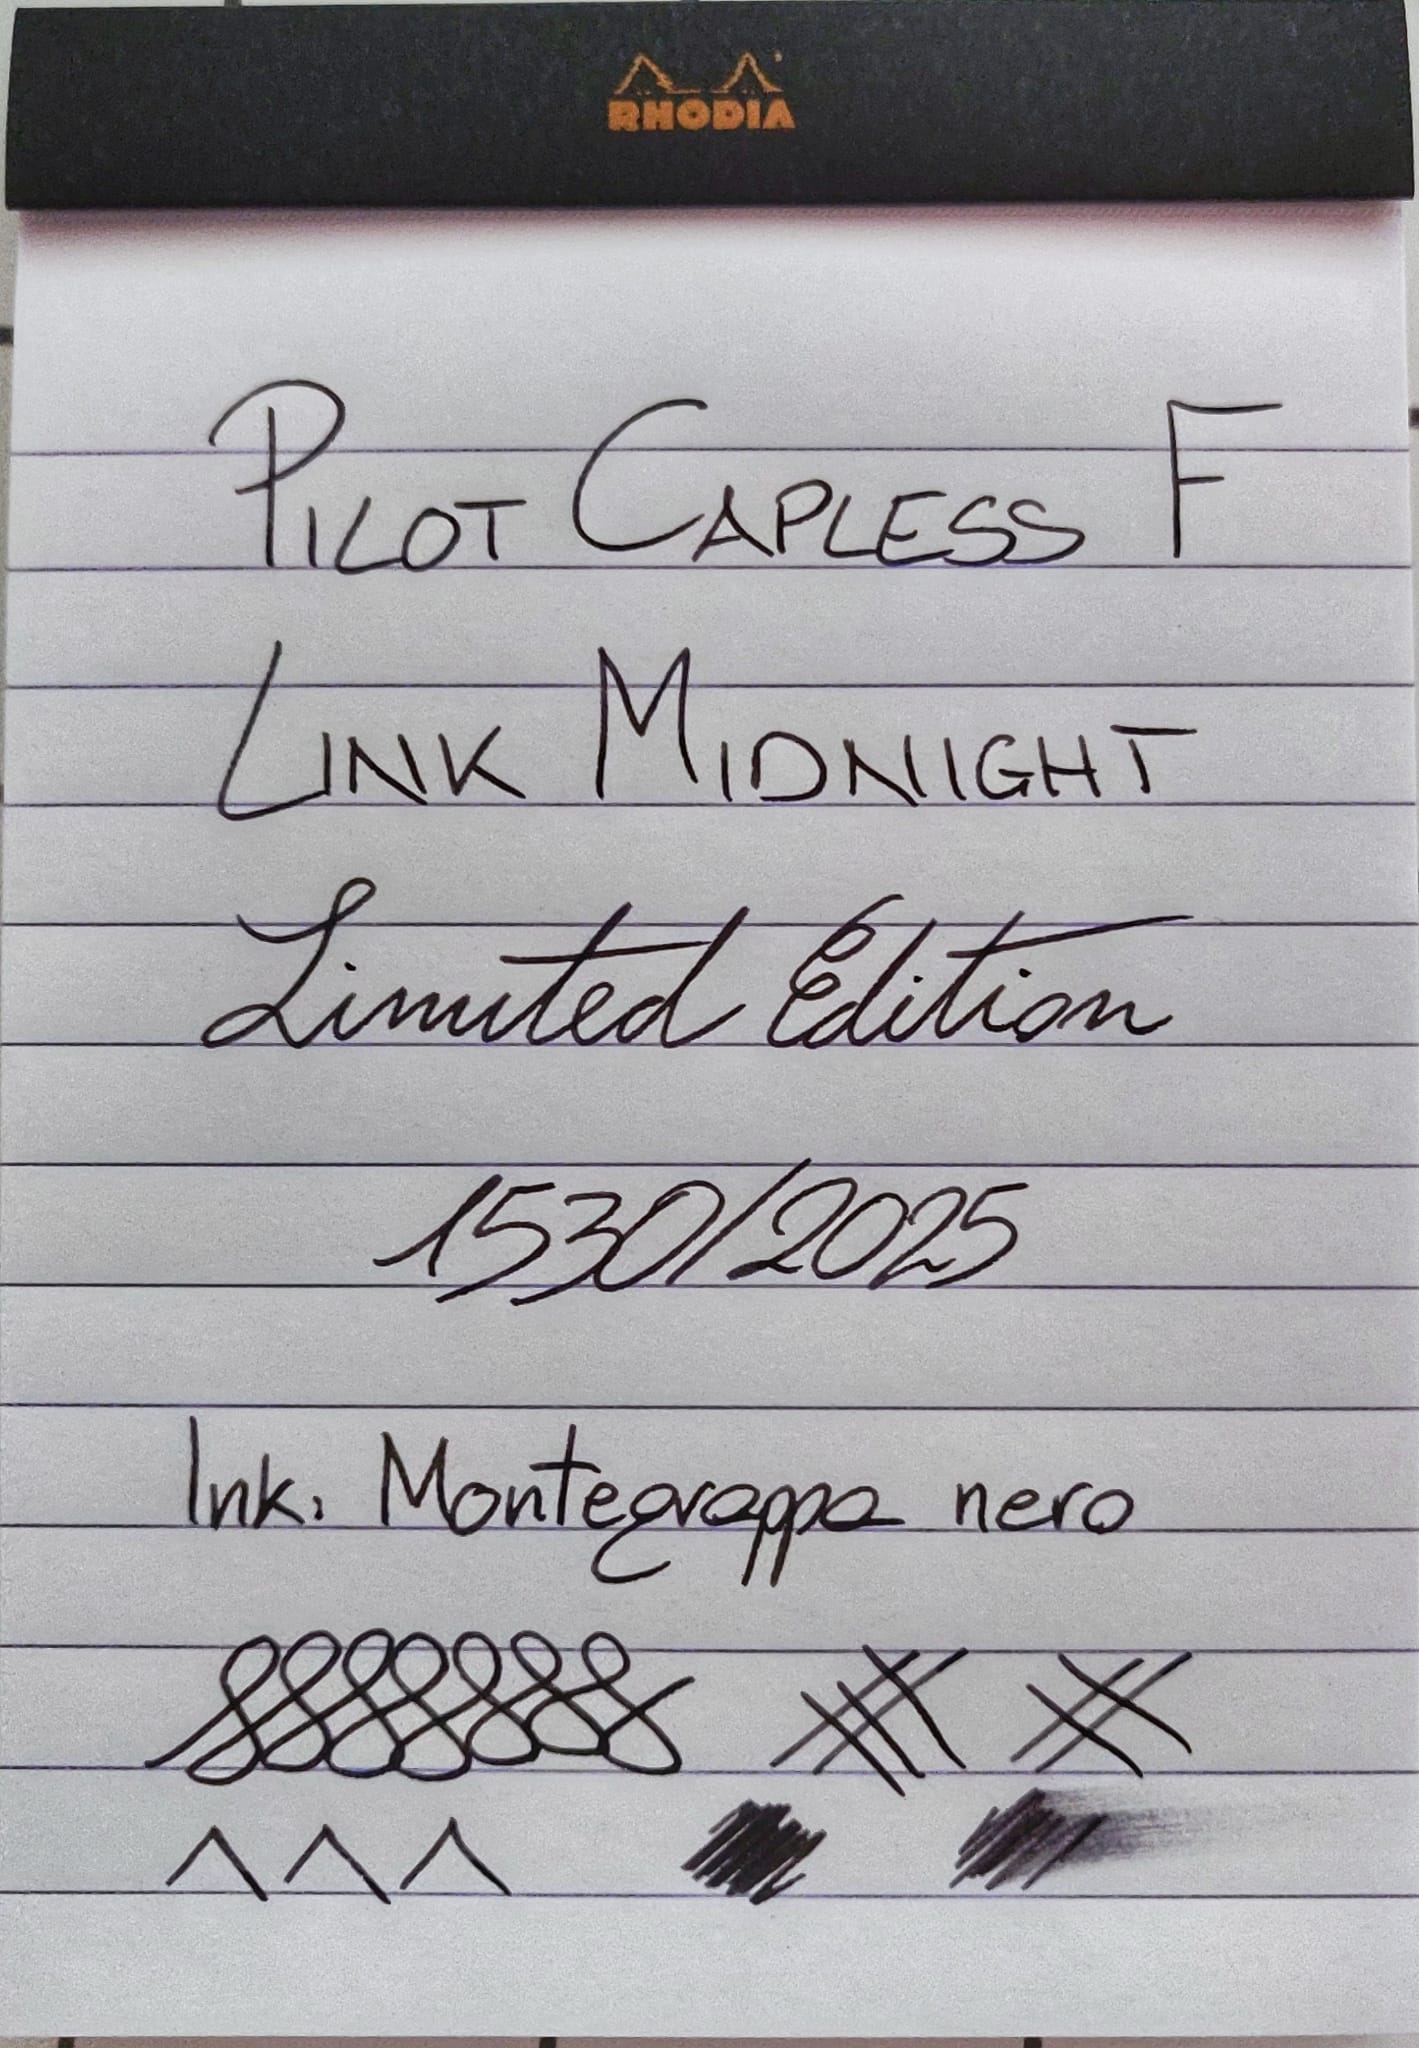 RHODIA
PILOT CAPLESS F
LINK MIDNIGHT
Limited Edition
1530/2025
Ink. Montegrappa nero